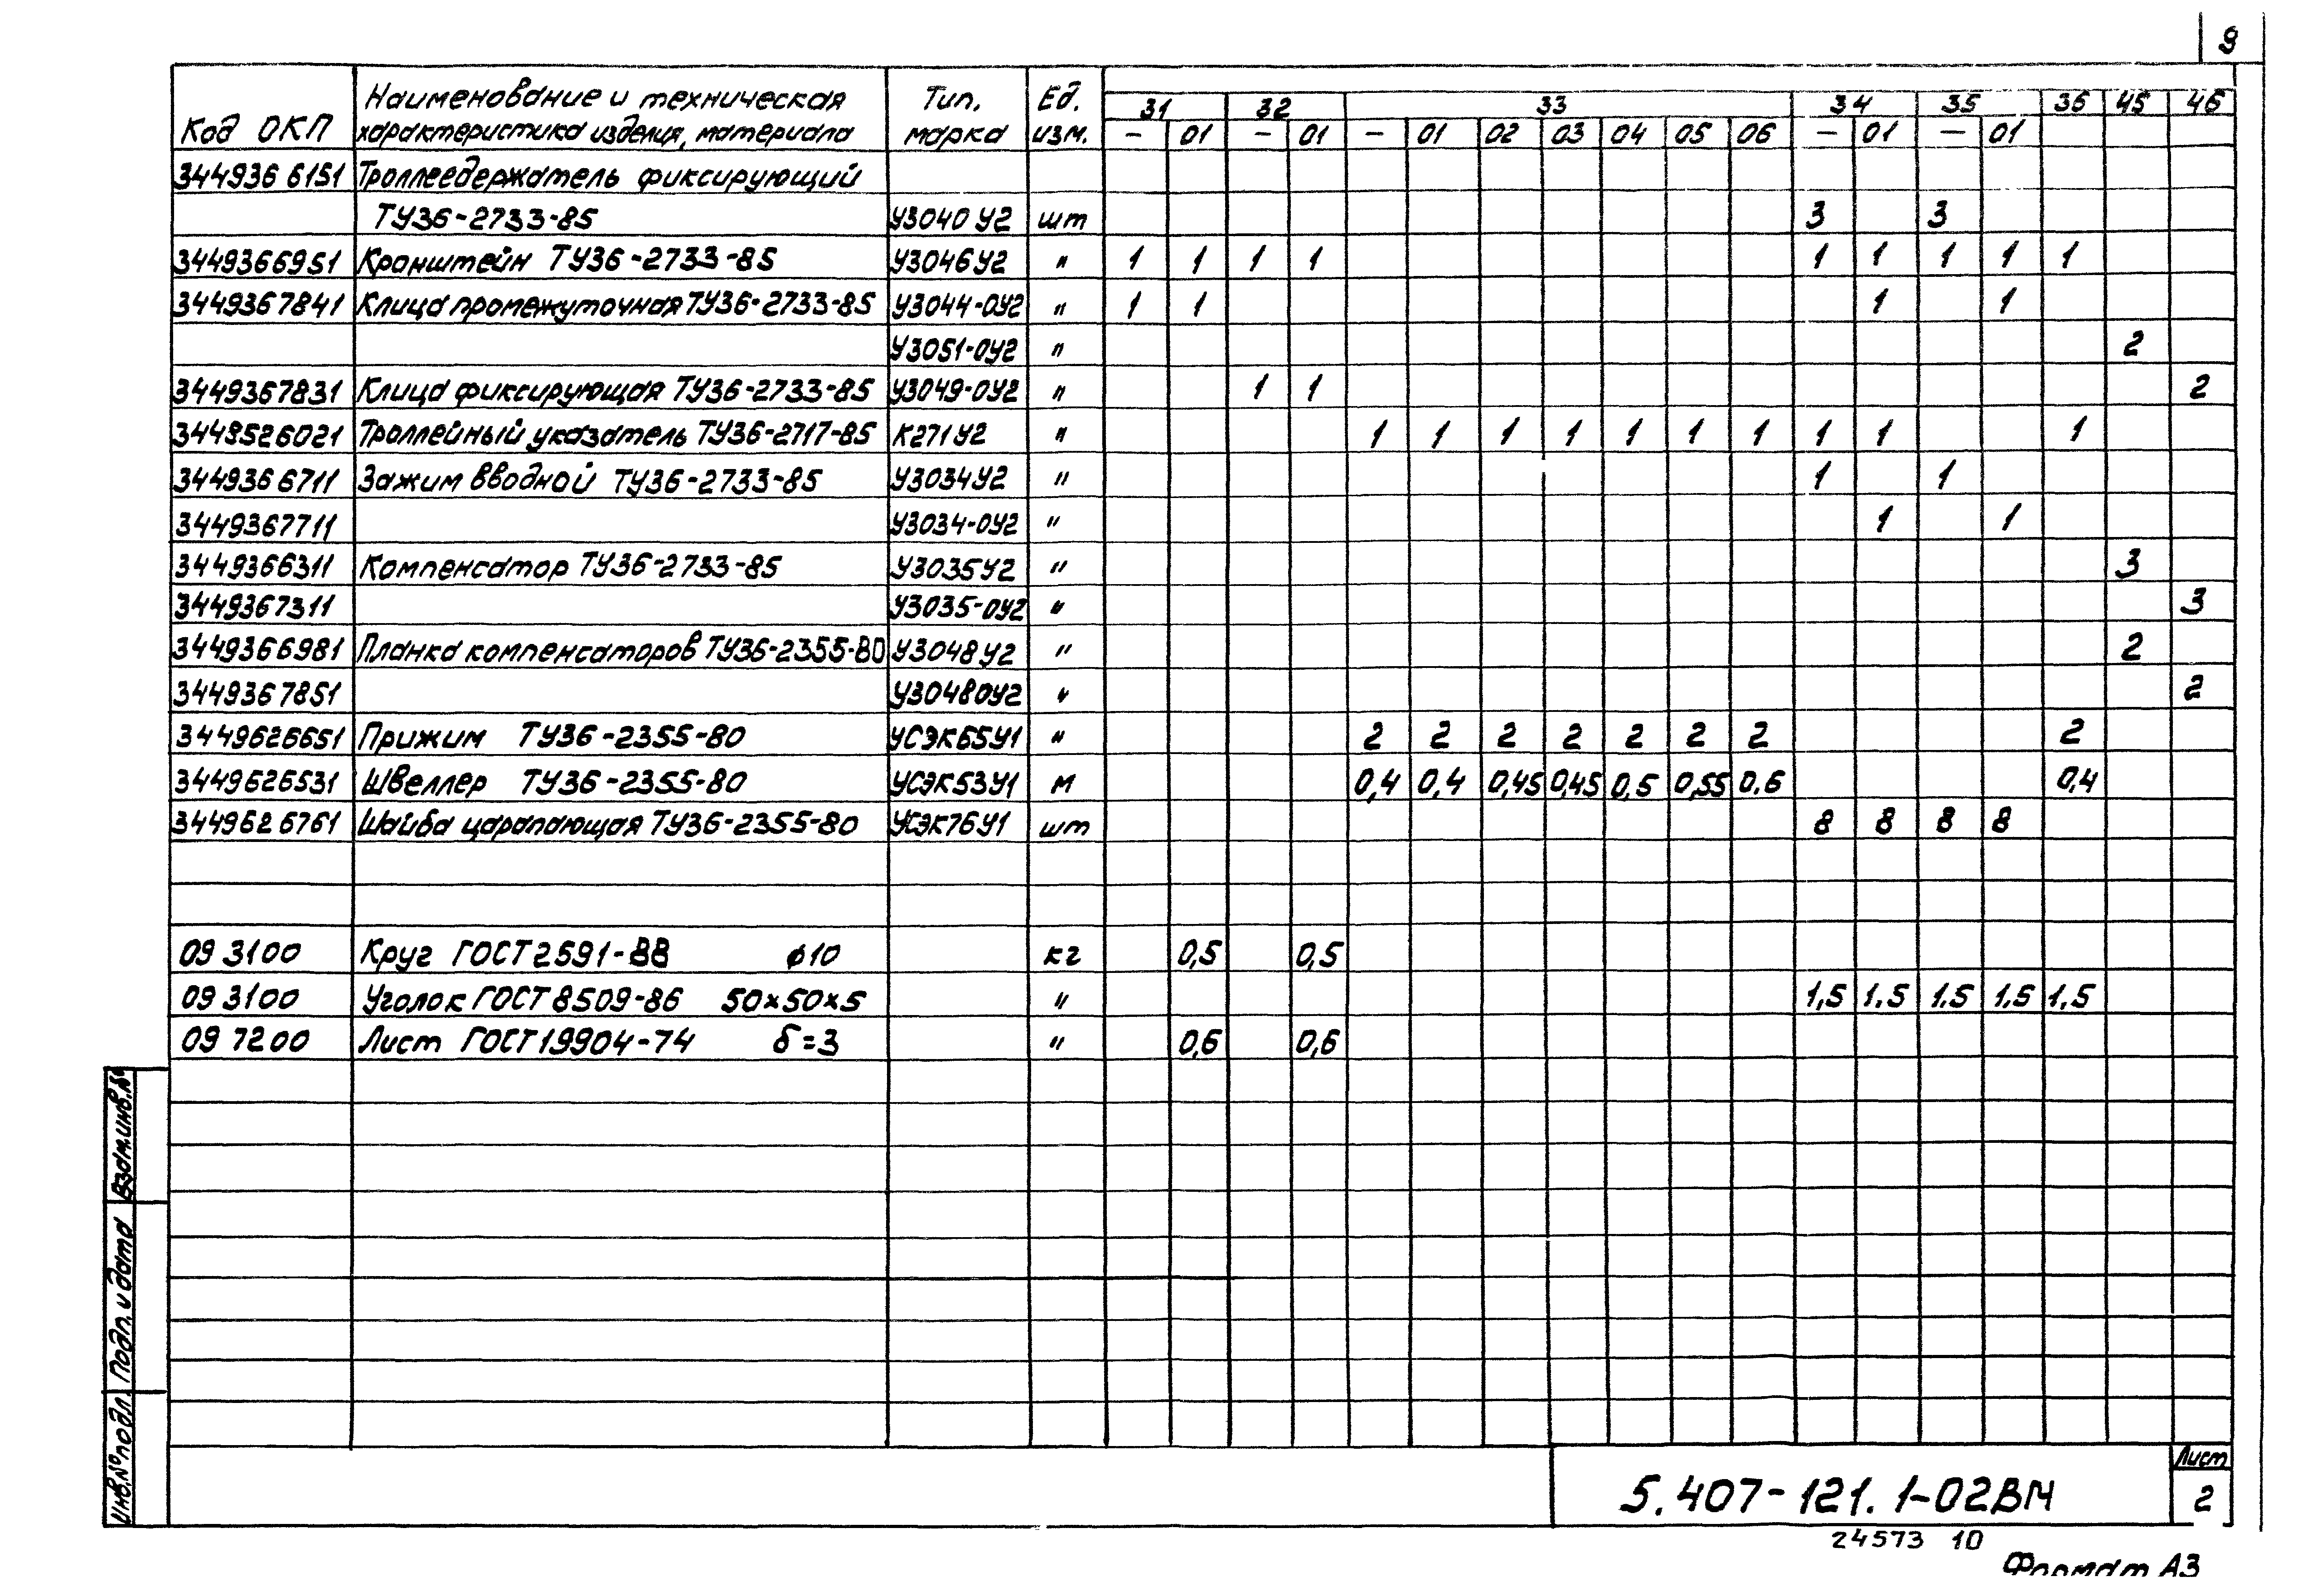 9
Код ОКП Наименование и техническая характеристика изделия, материала Тип, марка Ед. изм. 31 32 33 34 35 36 45 46
– 01 – 01 – 01 02 03 04 05 06 – 01 – 01
344936 6151 Троллеедержатель фиксирующий
ТУ36-2733-85 У3040 У2 шт 3 3
3449366951 Кронштейн ТУ36-2733-85 У3046У2 " 1 1 1 1 1 1 1 1 1
3449367841 Клица промежуточная ТУ36-2733-85 У3044-0У2 " 1 1 1 1
У3051-0У2 " 2
3449367831 Клица фиксирующая ТУ36-2733-85 У3049-0У2 " 1 1 2
3449526021 Троллейный указатель ТУ36-2717-85 К271У2 " 1 1 1 1 1 1 1 1 1 1
344936 6711 Зажим вводной ТУ36-2733-85 У3034У2 " 1 1
3449367711 У3034-0У2 " 1 1
3449366311 Компенсатор ТУ36-2733-85 У3035У2 " 3
3449367311 У3035-0У2 " 3
3449366981 Планка компенсаторов ТУ36-2355-80 У3048У2 " 2
3449367851 У30480У2 " 2
3449626651 Прижим ТУ36-2355-80 УСЭК65У1 " 2 2 2 2 2 2 2 2
3449626531 Швеллер ТУ36-2355-80 УСЭК53У1 м 0,4 0,4 0,45 0,45 0,5 0,55 0.6 0,4
344962 6761 Шайба царапающая ТУ36-2355-80 УСЭК76У1 шт 8 8 8 8
09 3100 Круг ГОСТ 2591-88 ø10 кг 0,5 0,5
09 3100 Уголок ГОСТ 8509-86 50×50×5 " 1,5 1.5 1.5 1,5 1,5
09 7200 Лист ГОСТ 19904-74 δ=3 " 0,6 0,6
Взам.инв.№
Подп. и дата
Инв.№подл.
5.407-121.1-02ВМ
Лист
2
24573 10
Формат А3